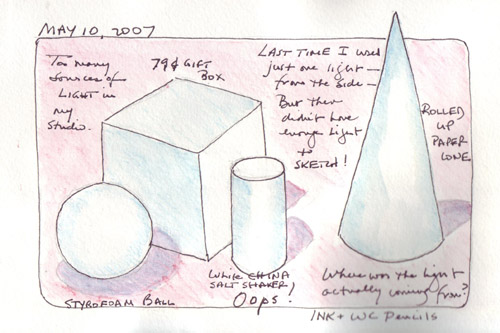 MAY 10, 2007
Too many
sources of
LIGHT in
my
Studio.
79¢ GIFT
BOX
LAST TIME I used
just one light —
from the side —
But then
didn't have
enough light
to
SKETCH!
ROLLED
UP
PAPER
CONE
STYROFOAM BALL
White CHINA
SALT SHAKER!
Oops!
Where was the light
actually coming from?
INK + WC Pencils